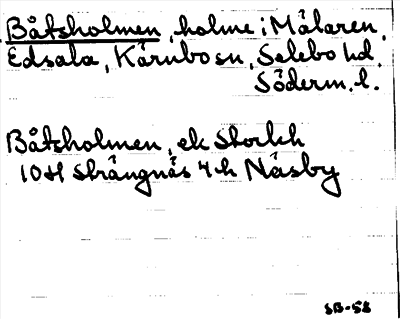 Båtsholmen, holme i Mälaren,
Edsala, Kärnbo sn, Selebo hd
Söderm. l.
Båtsholmen, ek Storkh
10H Strängnäs 4h Näsby
SB-58